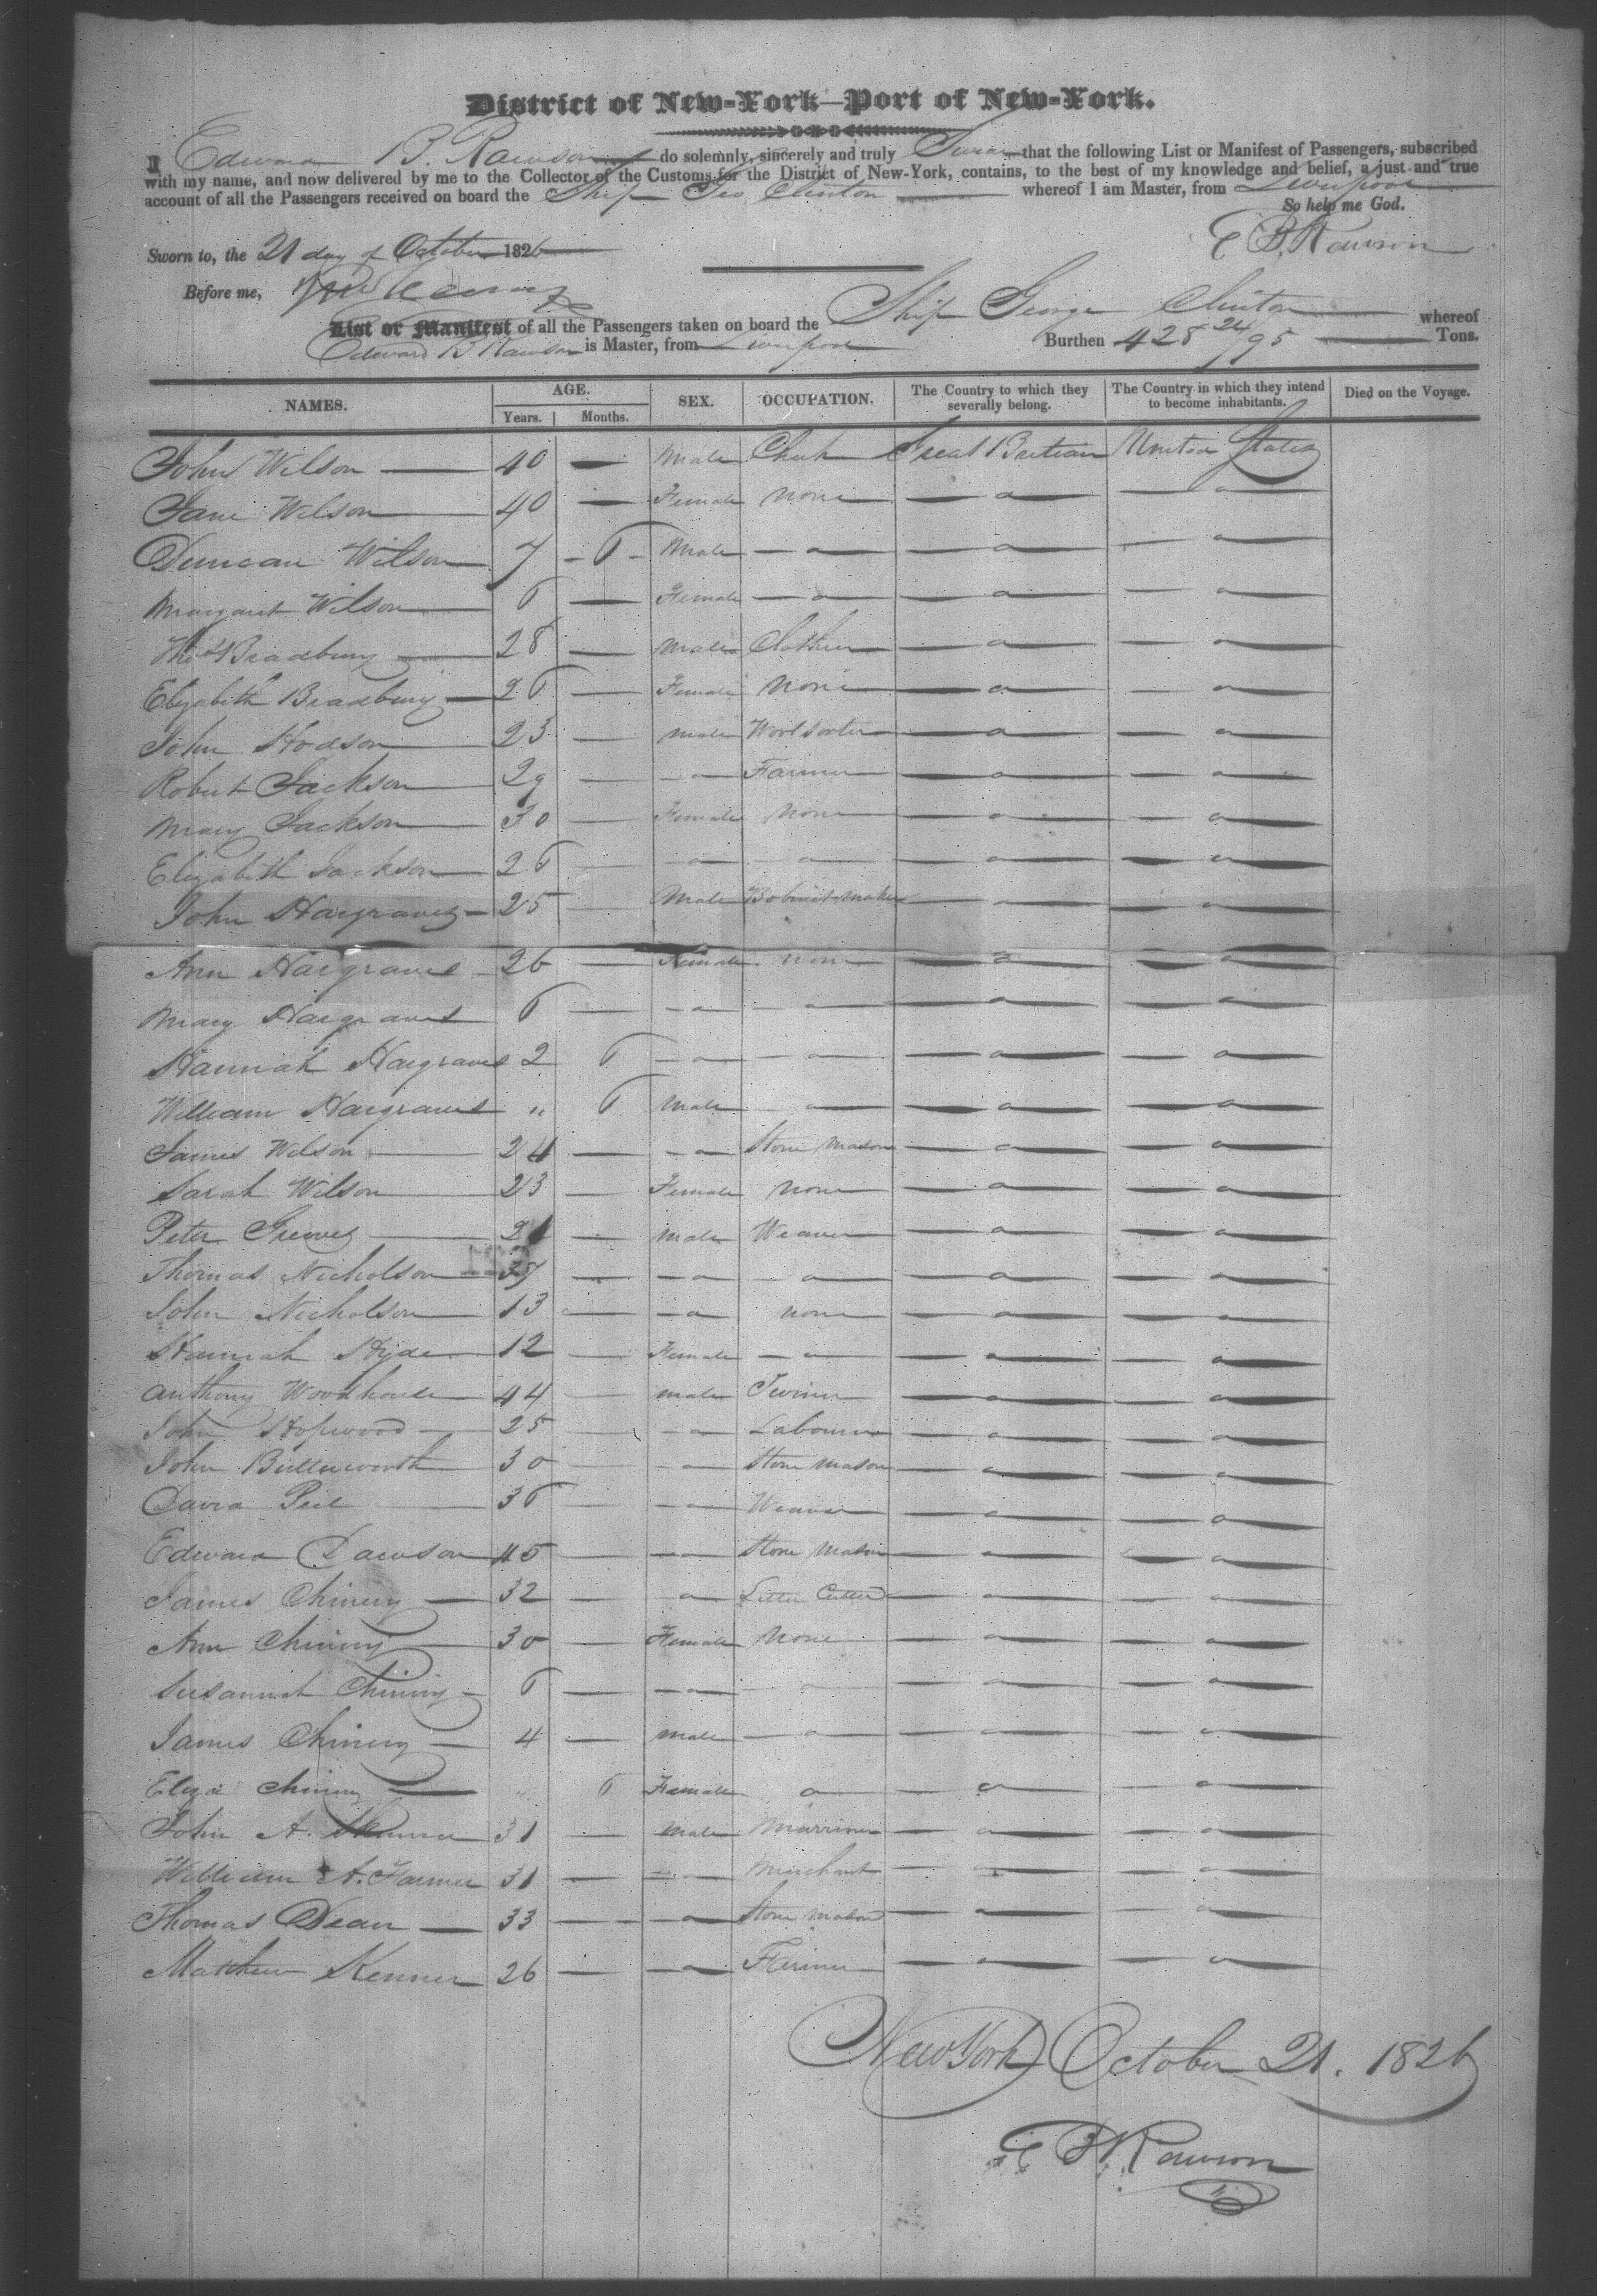 District of New-York—Port of New-York.
I Edward B. Rawson do solemnly, sincerely and truly Swear that the following List or Manifest of Passengers, subscribed
with my name, and now delivered by me to the Collector of the Customs for the District of New-York, contains, to the best of my knowledge and belief, a just and true
account of all the Passengers received on board the Ship Geo Clinton whereof I am Master, from Liverpool
So help me God.
E B. Rawson
Sworn to, the 21 day of October 1826
Before me,
List or Manifest of all the Passengers taken on board the Ship George Clinton whereof
Edward B Rawson is Master, from Liverpool Burthen 428 24/95 Tons.
NAMES. AGE. Years. Months. SEX. OCCUPATION. The Country to which they severally belong. The Country in which they intend to become inhabitants. Died on the Voyage.
John Wilson — 40 — Male Great Britian United States
Jane Wilson 40 — Female none — a — — a —
Duncan Wilson 7 - 6 - Male — a — — a — — a —
Margaret Wilson 6 — Female — a — — a — — a —
Thos Bradbury 28 — male Clothier — a — — a —
Elizabeth Bradbury 26 — Female none — a — — a —
John Hodson 23 — male Woolsorter — a — — a —
Robert Jackson 29 — — a — Farmer — a — — a —
Mary Jackson 30 — Female none — a — — a —
Elizabeth Jackson 26 — — a — — a — — a — — a —
John Hargraves 25 — Male Bobinet maker — a — — a —
Ann Hargraves 26 — Female none — a — — a —
Mary Hargraves 6 — — a — — a — — a — — a —
Hannah Hargraves 2 6 — a — — a — — a — — a —
William Hargraves " 6 male — a — — a — — a —
James Wilson 24 — — a — Stone Mason — a — — a —
Sarah Wilson 23 — Female none — a — — a —
Peter Greeves 21 — male Weaver — a — — a —
Thomas Nicholson 37 — — a — — a — — a — — a —
John Nicholson 13 — — a — none — a — — a —
Hannah Hyde 12 — Female — a — — a — — a —
Anthony Woodhouse 44 — male — a — — a —
John Hopwood 25 — — a — Labourer — a — — a —
John Butterworth 30 — — a — Stone mason — a — — a —
David Peel 36 — a — Weaver — a — — a —
Edward Dawson 45 — — a — Stone Mason — a — — a —
James Chinery 32 — a — Letter Cutter — a — — a —
Ann Chinery 30 — Female None — a — — a —
Susannah Chinery 6 — — a — — a — — a — — a —
James Chinery 4 — male — a — — a — — a —
Eliza Chinery " 6 Female a — a — — a —
John A. Skinner 31 — male Marriner — a — — a —
William A. Farmer 31 — — a — Merchant — a — — a —
Thomas Dean 33 — — a — Stone mason — a — — a —
Matthew Kenner 26 — — a — Farmer — a — — a —
New York October 21. 1826
E B. Rawson